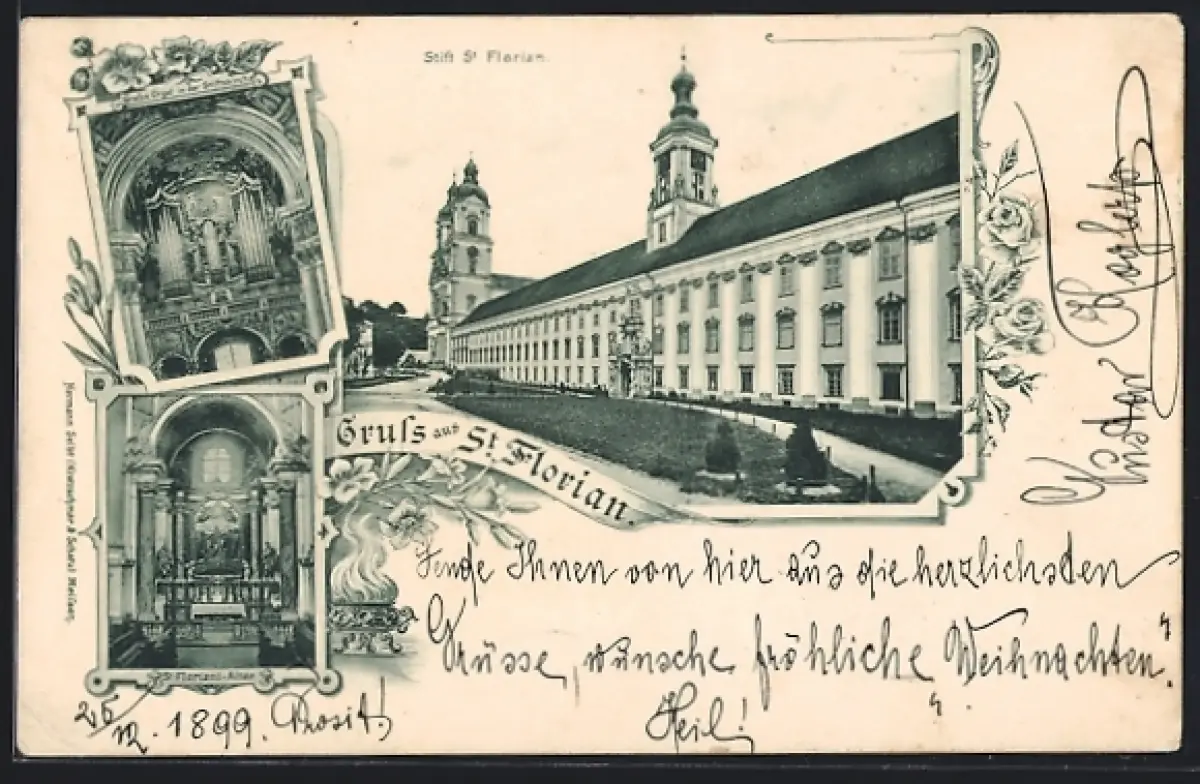 Stift St Florian.
Gruss aus St. Florian.
St Florians-Altar
Sende Ihnen von hier aus die herzlichsten
Grüsse, wünsche fröhliche Weihnachten.
Heil!
25/XII. 1899. Prosit!
Gustav